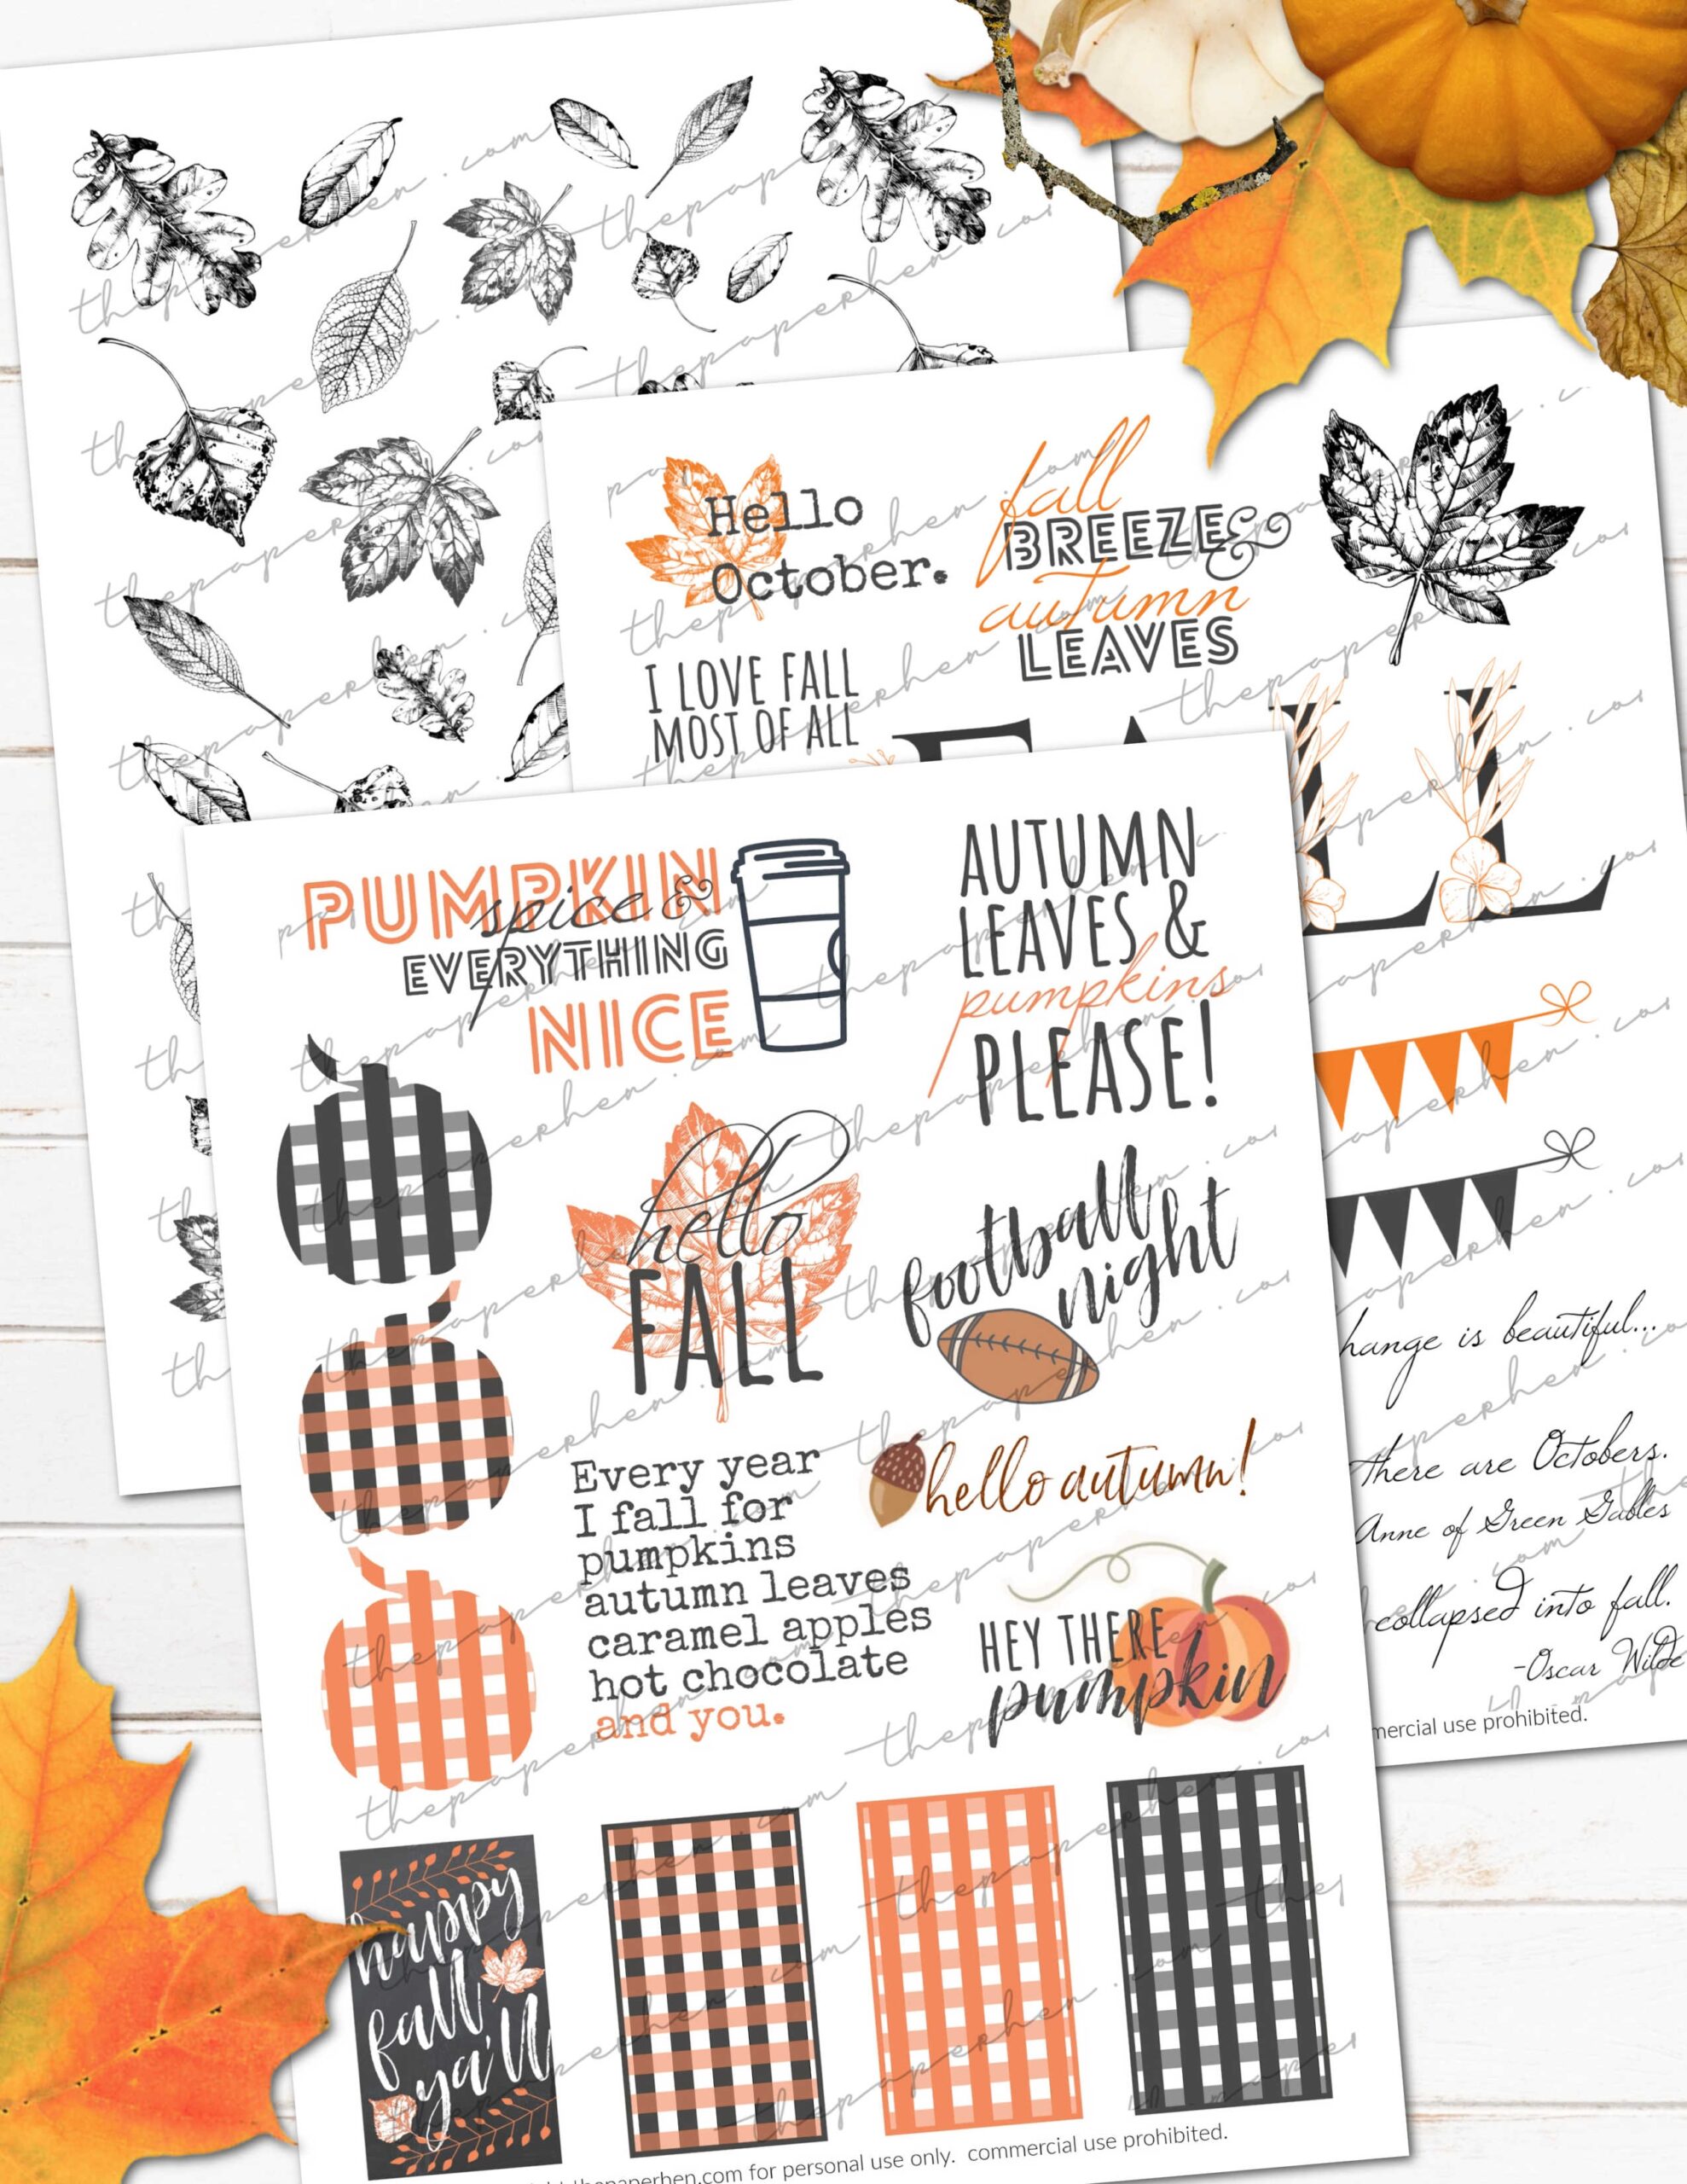 Hello
October.
fall
BREEZE &
autumn
LEAVES
I LOVE FALL
MOST OF ALL
PUMPKIN
spice &
EVERYTHING
NICE
AUTUMN
LEAVES &
pumpkins
PLEASE!
hello
FALL
football
night
hello autumn!
Every year
I fall for
pumpkins
autumn leaves
caramel apples
hot chocolate
and you.
HEY THERE
pumpkin
happy
fall
ya'll
is beautiful...
there are Octobers.
Anne of Green Gables
collapsed into fall.
-Oscar Wilde
use prohibited.
thepaperhen.com for personal use only. commercial use prohibited.
thepaperhen.com